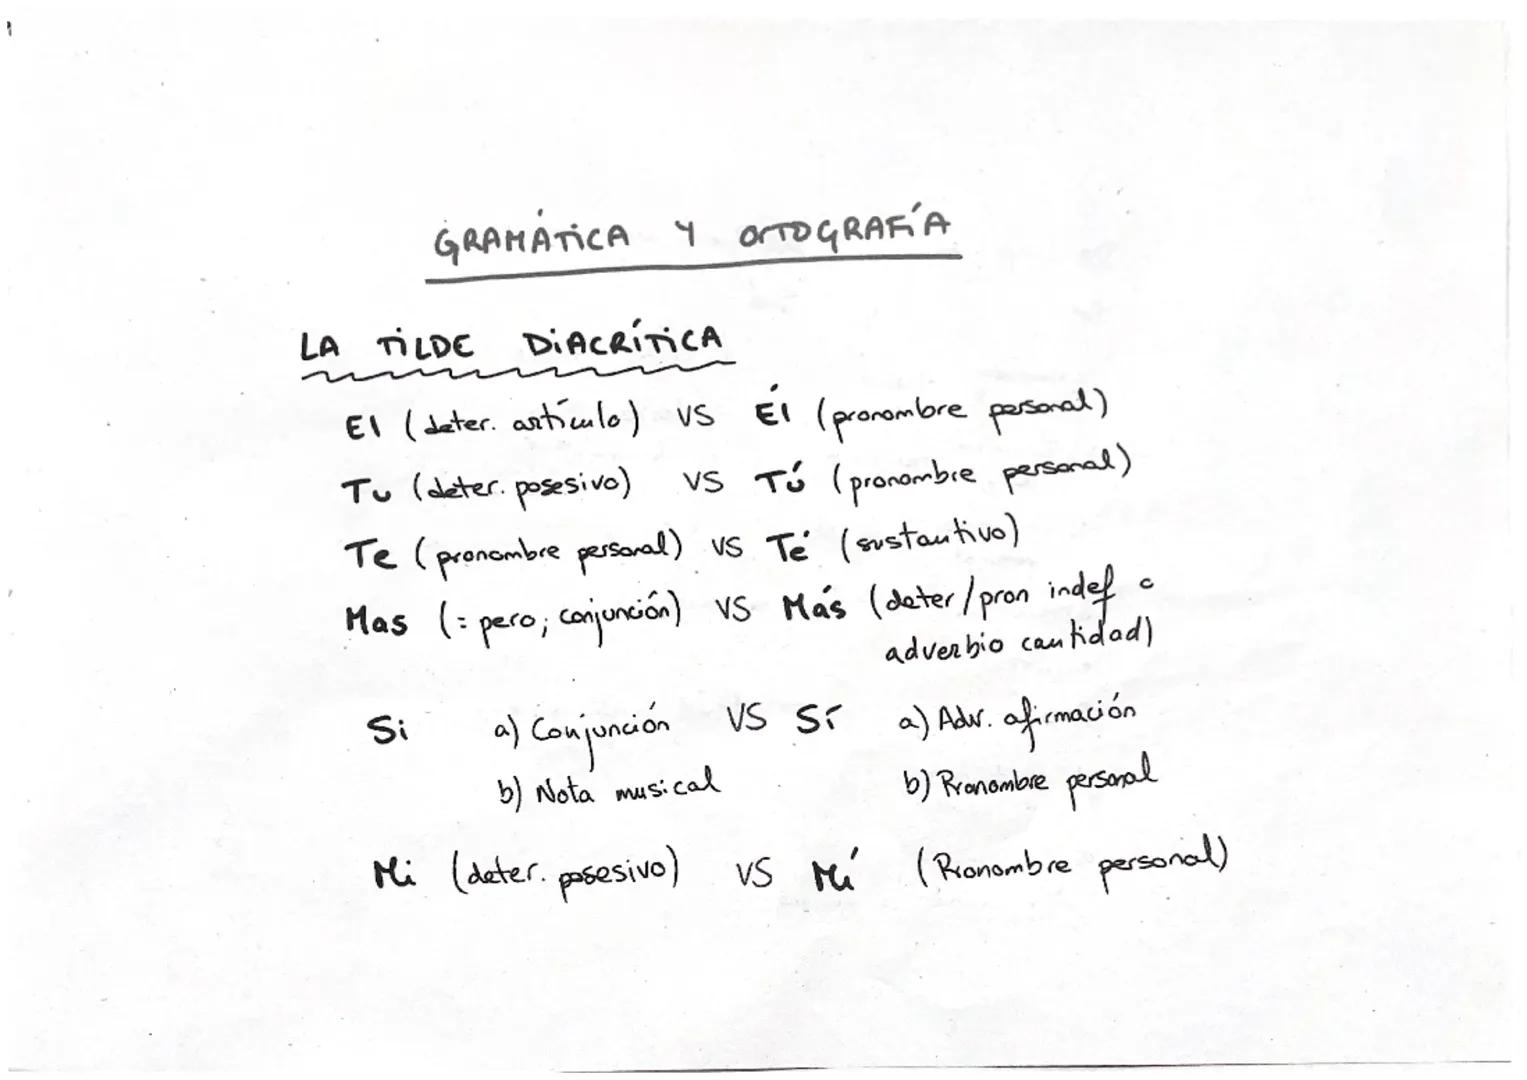 GRAMÁTICA Y ORTOGRAFÍA
LA TILDE DIACRÍTICA
El (deter. artículo) VS Él (pronombre personal)
Tu (deter. posesivo) VS Tú (pronombre personal)
Te (pronombre personal) VS Té (sustantivo)
Mas (= pero; conjunción) VS Más (deter/pron indef o
adverbio cantidad)
Si a) Conjunción VS Sí a) Adv. afirmación
b) Nota musical b) Pronombre personal
Mi (deter. posesivo) VS Mí (Pronombre personal)